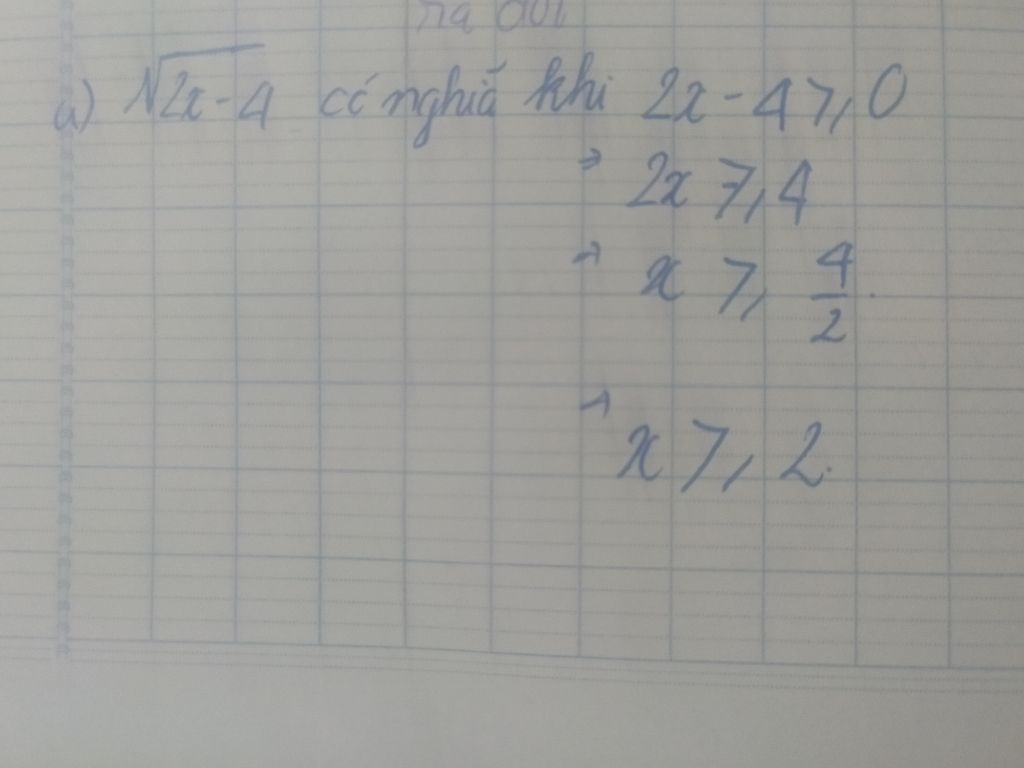 a) √2x-4 có nghĩa khi 2x - 4 ≥ 0
→ 2x ≥ 4
→ x ≥ 4/2.
→ x ≥ 2.